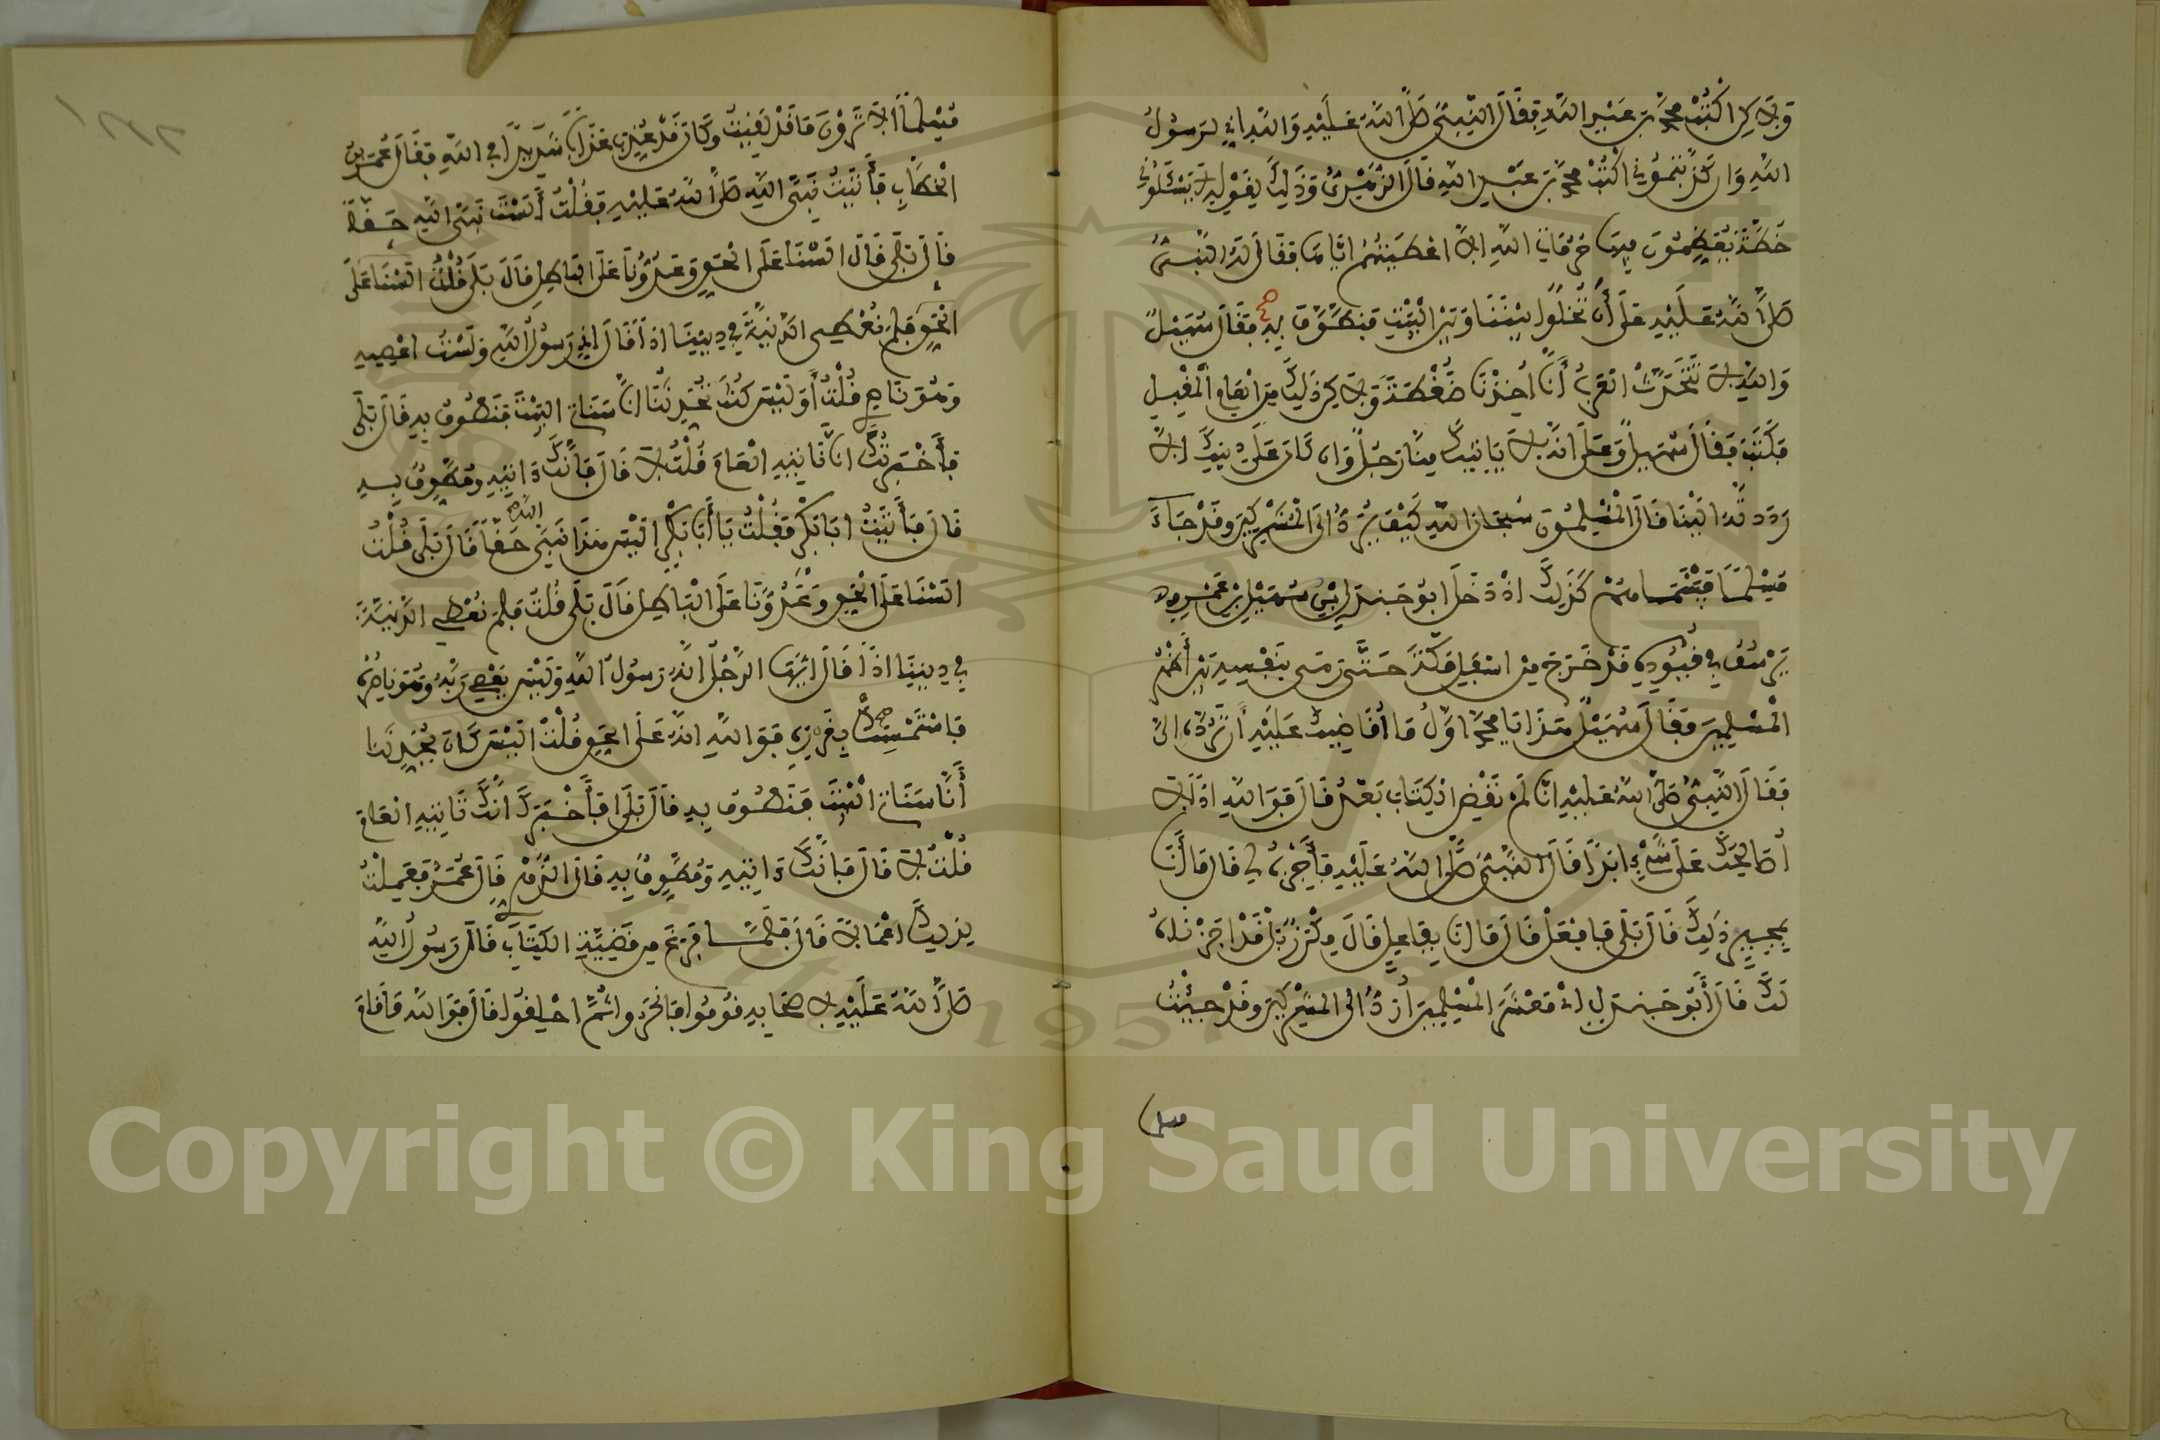 وَلَاكِنِ اكْتُبْ مُحَمَّدُ بْنُ عَبْدِ اللَّهِ فَقَالَ النَّبِيُّ صَلَّى اللَّهُ عَلَيْهِ وَاللَّهِ إِنِّي لَرَسُولُ
اللَّهِ وَإِنْ كَذَّبْتُمُونِي اكْتُبْ مُحَمَّدُ بْنُ عَبْدِ اللَّهِ قَالَ الزُّهْرِيُّ وَذَلِكَ لِقَوْلِهِ لَا يَسْئَلُونِي
خُطَّةً يُعَظِّمُونَ فِيهَا حُرُمَاتِ اللَّهِ إِلَّا أَعْطَيْتُهُمْ إِيَّاهَا فَقَالَ لَهُ النَّبِيُّ
صَلَّى اللَّهُ عَلَيْهِ عَلَى أَنْ تُخَلُّوا بَيْنَنَا وَبَيْنَ الْبَيْتِ فَنَطَّوَّفَ بِهِ فَقَالَ سُهَيْلٌ
وَاللَّهِ لَا تَتَحَدَّثُ الْعَرَبُ أَنَّا أُخِذْنَا ضُغْطَةً وَلَاكِنْ ذَلِكَ مِنَ الْعَامِ الْمُقْبِلِ
فَكَتَبَ فَقَالَ سُهَيْلٌ وَعَلَى أَنَّهُ لَا يَاتِيكَ مِنَّا رَجُلٌ وَإِنْ كَانَ عَلَى دِينِكَ إِلَّا
رَدَدْتَهُ إِلَيْنَا قَالَ الْمُسْلِمُونَ سُبْحَانَ اللَّهِ كَيْفَ يُرَدُّ إِلَى الْمُشْرِكِينَ وَقَدْ جَاءَ
مُسْلِمًا فَبَيْنَمَا هُمْ كَذَلِكَ إِذْ دَخَلَ أَبُو جَنْدَلِ ابْنُ سُهَيْلِ بْنِ عَمْرٍو
يَرْسُفُ فِي قُيُودِهِ قَدْ خَرَجَ مِنْ أَسْفَلِ مَكَّةَ حَتَّى رَمَى بِنَفْسِهِ بَيْنَ أَظْهُرِ
الْمُسْلِمِينَ فَقَالَ سُهَيْلٌ هَذَا يَا مُحَمَّدُ أَوَّلُ مَا أُقَاضِيكَ عَلَيْهِ أَنْ تَرُدَّهُ إِلَيَّ
فَقَالَ النَّبِيُّ صَلَّى اللَّهُ عَلَيْهِ إِنَّا لَمْ نَقْضِ الْكِتَابَ بَعْدُ قَالَ فَوَاللَّهِ إِذًا لَا
أُصَالِحُكَ عَلَى شَيْءٍ أَبَدًا قَالَ النَّبِيُّ صَلَّى اللَّهُ عَلَيْهِ فَأَجِزْهُ لِي قَالَ مَا أَنَا
بِمُجِيزِ ذَلِكَ قَالَ بَلَى فَافْعَلْ قَالَ مَا أَنَا بِفَاعِلٍ قَالَ مِكْرَزٌ بَلْ قَدْ أَجَزْنَاهُ
لَكَ قَالَ أَبُو جَنْدَلٍ أَيْ مَعْشَرَ الْمُسْلِمِينَ أُرَدُّ إِلَى الْمُشْرِكِينَ وَقَدْ جِئْتُ
مسلما
مُسْلِمًا أَلَا تَرَوْنَ مَا قَدْ لَقِيتُ وَكَانَ قَدْ عُذِّبَ عَذَابًا شَدِيدًا فِي اللَّهِ فَقَالَ عُمَرُ بْنُ
الْخَطَّابِ فَأَتَيْتُ نَبِيَّ اللَّهِ صَلَّى اللَّهُ عَلَيْهِ فَقُلْتُ أَلَسْتَ نَبِيَّ اللَّهِ حَقًّا
قَالَ بَلَى قَالَ أَلَسْنَا عَلَى الْحَقِّ وَعَدُوُّنَا عَلَى الْبَاطِلِ قَالَ بَلَى قُلْتُ أَلَسْنَا عَلَى
الْحَقِّ فَلِمَ نُعْطِي الدَّنِيَّةَ فِي دِينِنَا إِذًا قَالَ إِنِّي رَسُولُ اللَّهِ وَلَسْتُ أَعْصِيهِ
وَهُوَ نَاصِرِي قُلْتُ أَوَلَيْسَ كُنْتَ تُحَدِّثُنَا أَنَّا سَنَاتِي الْبَيْتَ فَنَطَّوَّفُ بِهِ قَالَ بَلَى
فَأَخْبَرْتُكَ أَنَّا نَاتِيهِ الْعَامَ قُلْتُ لَا قَالَ فَإِنَّكَ ءَاتِيهِ وَمُطَّوِّفٌ بِهِ
قَالَ فَأَتَيْتُ أَبَا بَكْرٍ فَقُلْتُ يَا أَبَا بَكْرٍ أَلَيْسَ هَذَا نَبِيَّ اللَّهِ حَقًّا قَالَ بَلَى قُلْتُ
أَلَسْنَا عَلَى الْحَقِّ وَعَدُوُّنَا عَلَى الْبَاطِلِ قَالَ بَلَى قُلْتُ فَلِمَ نُعْطِي الدَّنِيَّةَ
فِي دِينِنَا إِذًا قَالَ أَيُّهَا الرَّجُلُ إِنَّهُ رَسُولُ اللَّهِ وَلَيْسَ يَعْصِي رَبَّهُ وَهُوَ نَاصِرُهُ
فَاسْتَمْسِكْ بِغَرْزِهِ فَوَاللَّهِ إِنَّهُ عَلَى الْحَقِّ قُلْتُ أَلَيْسَ كَانَ يُحَدِّثُنَا
أَنَّا سَنَاتِي الْبَيْتَ فَنَطَّوَّفُ بِهِ قَالَ بَلَى أَفَأَخْبَرَكَ أَنَّكَ تَاتِيهِ الْعَامَ
قُلْتُ لَا قَالَ فَإِنَّكَ ءَاتِيهِ وَمُطَّوِّفٌ بِهِ قَالَ الزُّهْرِيُّ قَالَ عُمَرُ فَعَمِلْتُ
لِذَلِكَ أَعْمَالًا قَالَ فَلَمَّا فَرَغَ مِنْ قَضِيَّةِ الْكِتَابِ قَالَ رَسُولُ اللَّهِ
صَلَّى اللَّهُ عَلَيْهِ لِأَصْحَابِهِ قُومُوا فَانْحَرُوا ثُمَّ احْلِقُوا قَالَ فَوَاللَّهِ مَا قَامَ
1957
Copyright © King Saud University